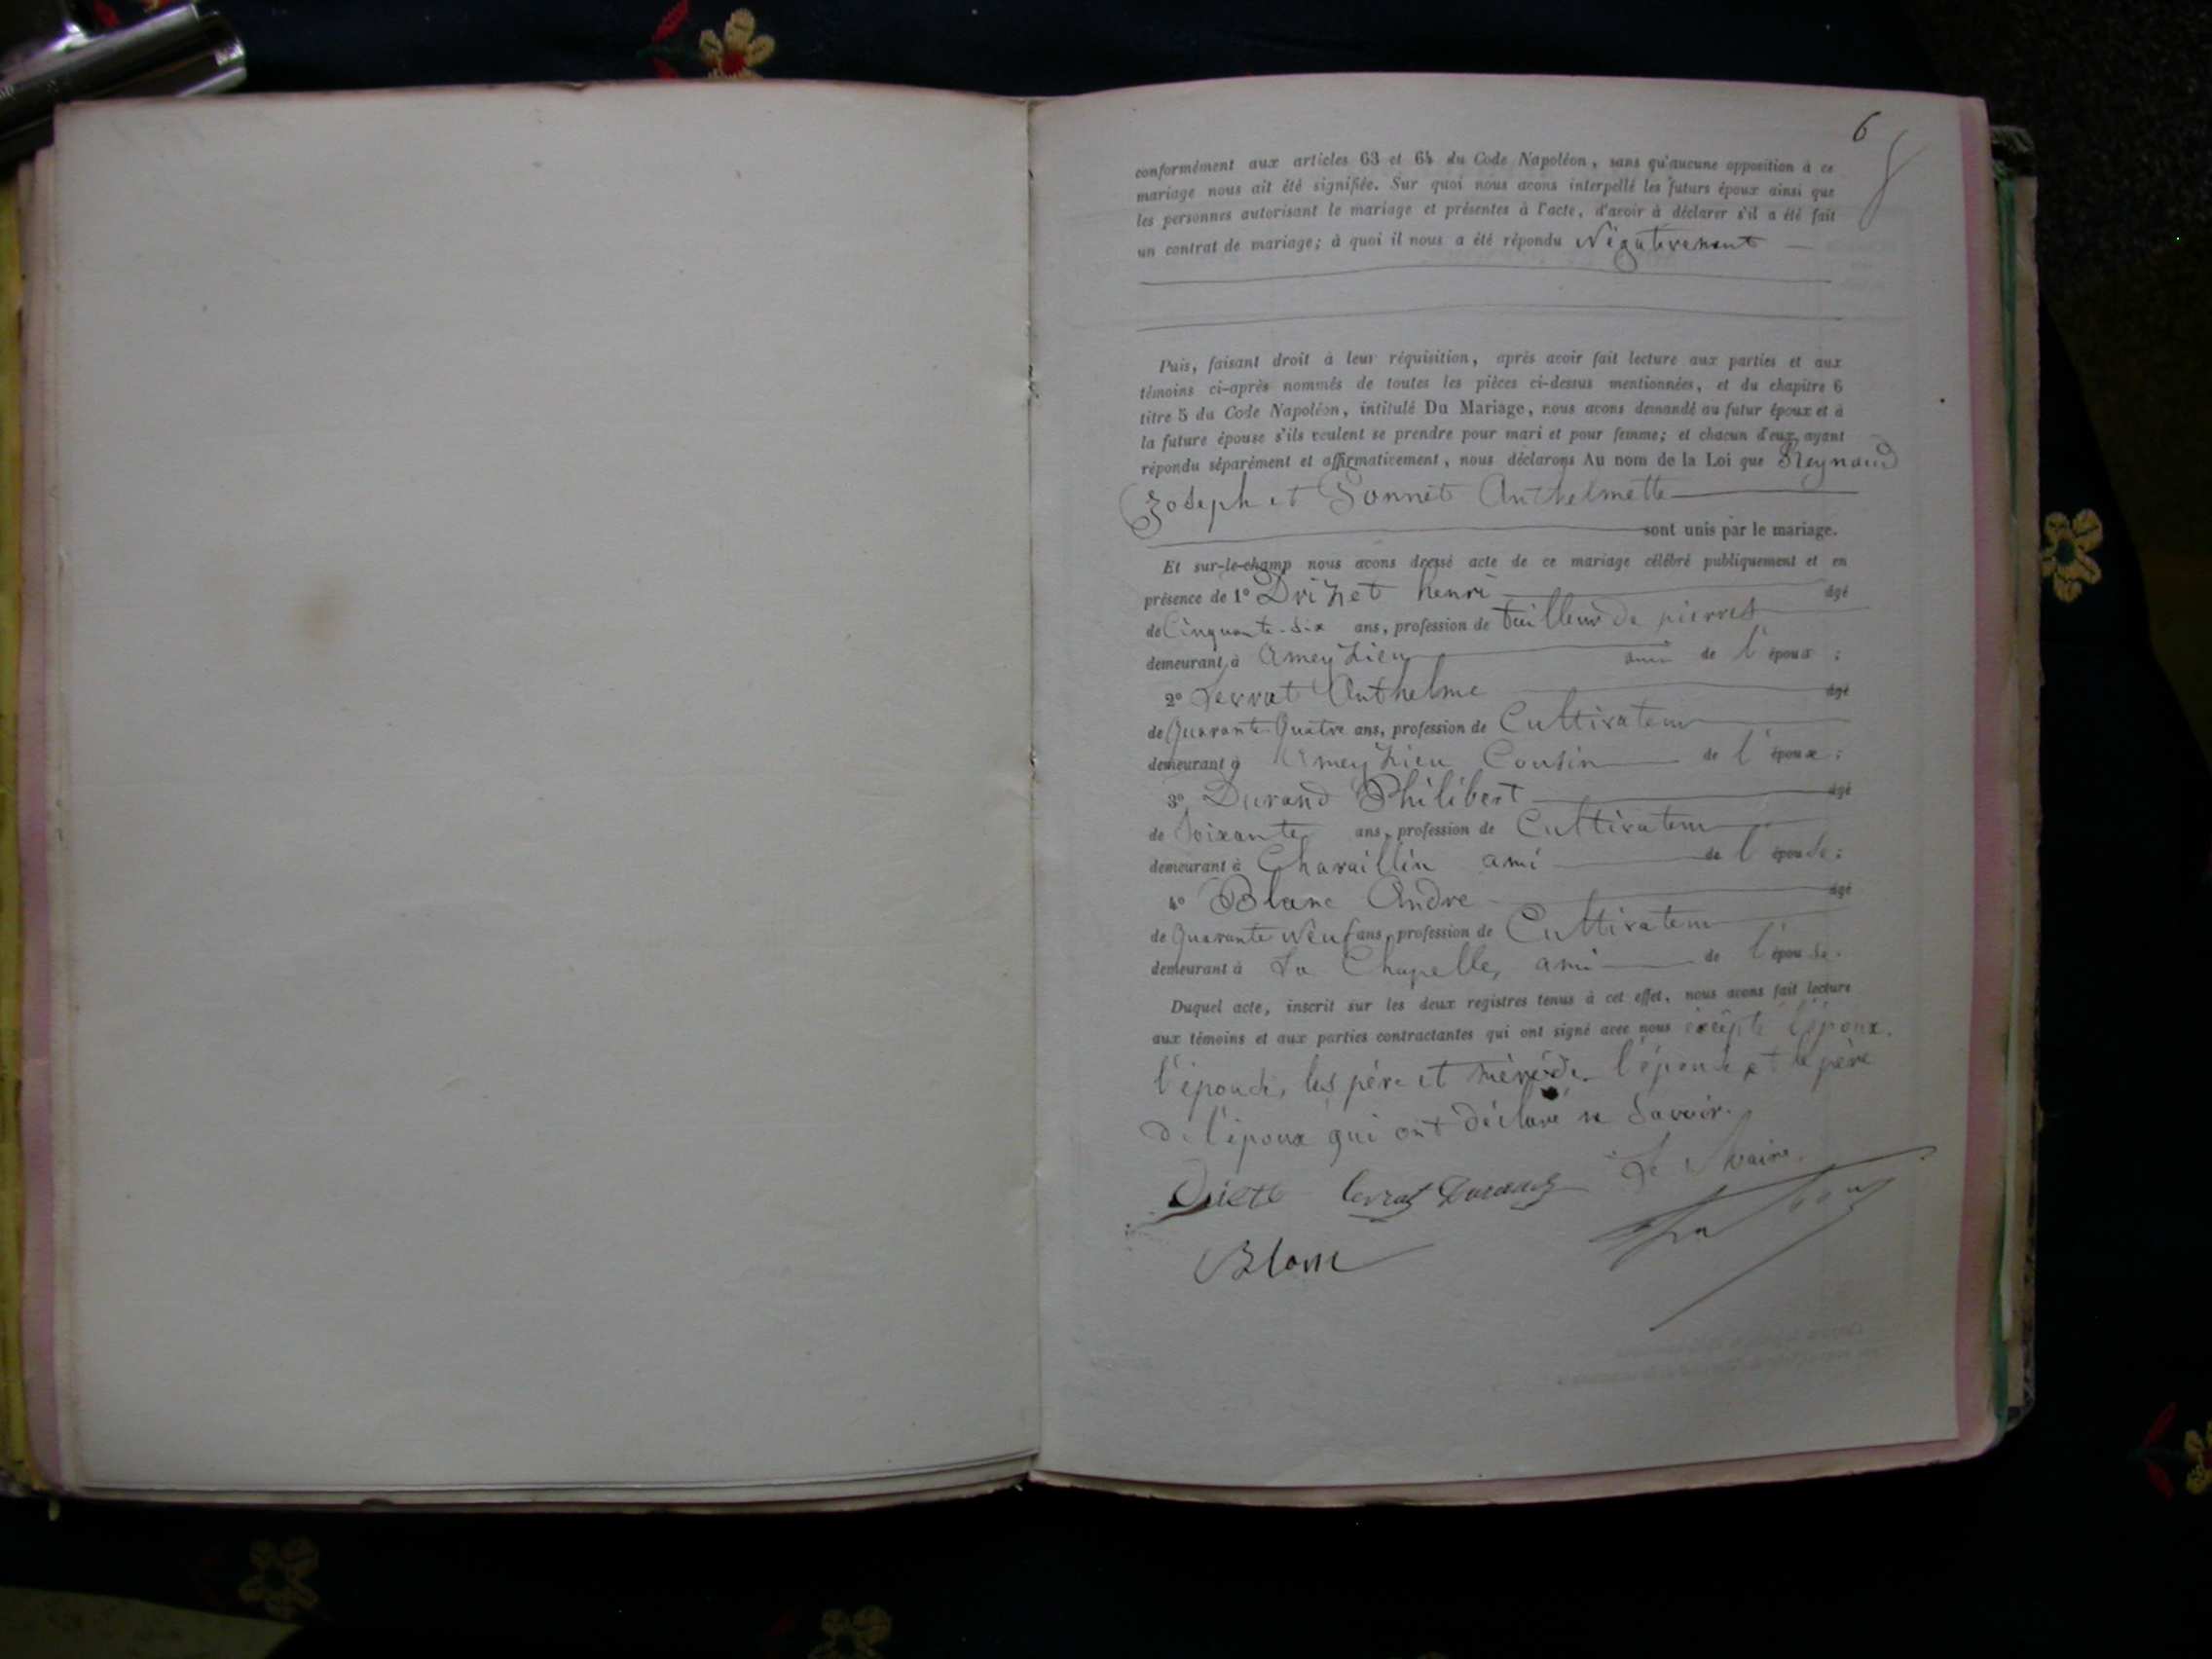 6
conformément aux articles 63 et 64 du Code Napoléon, sans qu'aucune opposition à ce
mariage nous ait été signifiée. Sur quoi nous avons interpellé les futurs époux ainsi que
les personnes autorisant le mariage et présentes à l'acte, d'avoir à déclarer s'il a été fait
un contrat de mariage; à quoi il nous a été répondu Négativement —
Puis, faisant droit à leur réquisition, après avoir fait lecture aux parties et aux
témoins ci-après nommés de toutes les pièces ci-dessus mentionnées, et du chapitre 6
titre 5 du Code Napoléon, intitulé Du Mariage, nous avons demandé au futur époux et à
la future épouse s'ils veulent se prendre pour mari et pour femme; et chacun d'eux, ayant
répondu séparément et affirmativement, nous déclarons Au nom de la Loi que Reynaud
Joseph et Bonnet Anthelmette
sont unis par le mariage.
Et sur-le-champ nous avons dressé acte de ce mariage célébré publiquement et en
présence de 1° Drizet henri âgé
de Cinquante-Six ans, profession de tailleur de pierres
demeurant à Ameyzieu ami de l'époux ;
2° Serrat Anthelme âgé
de Quarante-Quatre ans, profession de Cultivateur
demeurant à Ameyzieu Cousin de l'époux ;
3° Durand Philibert âgé
de Soixante ans, profession de Cultivateur
demeurant à Chavaillin ami de l'épouse ;
4° Blanc Andre âgé
de Quarante Neuf ans, profession de Cultivateur
demeurant à La Chapelle, ami de l'épouse.
Duquel acte, inscrit sur les deux registres tenus à cet effet, nous avons fait lecture
aux témoins et aux parties contractantes qui ont signé avec nous excepté l'époux.
l'épouse, les père et mère de l'épouse et le père
de l'époux qui ont déclaré ne Savoir.
Le Maire.
Durand
Blanc